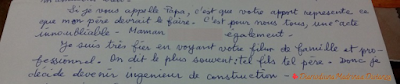 Si je vous appelle Papa, c'est que votre apport represente ce
que mon père devrait le faire. C'est pour nous tous, une acte
inoubliable - Maman également.
Je suis très fier en voyant votre filur de famille et pro-
fessionnel. On dit le plus souvent; tel fils tel père. Donc je
décide devenir ingenieur de construction.